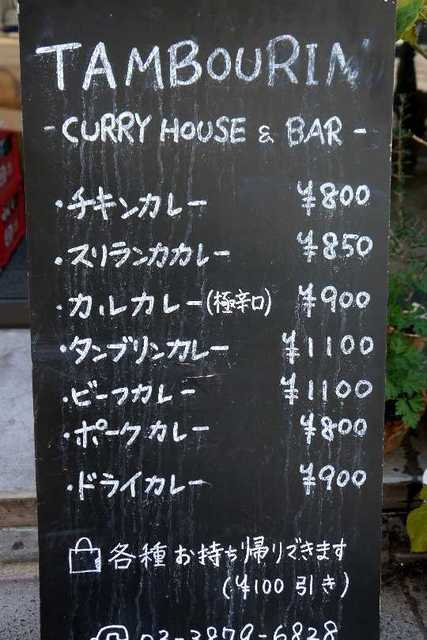 TAMBOURIN
- CURRY HOUSE & BAR -
・チキンカレー ¥800
・スリランカカレー ¥850
・カルカレー(極辛口) ¥900
・タンブリンカレー ¥1100
・ビーフカレー ¥1100
・ポークカレー ¥800
・ドライカレー ¥900
各種お持ち帰りできます
(¥100引き)
03-3879-6828